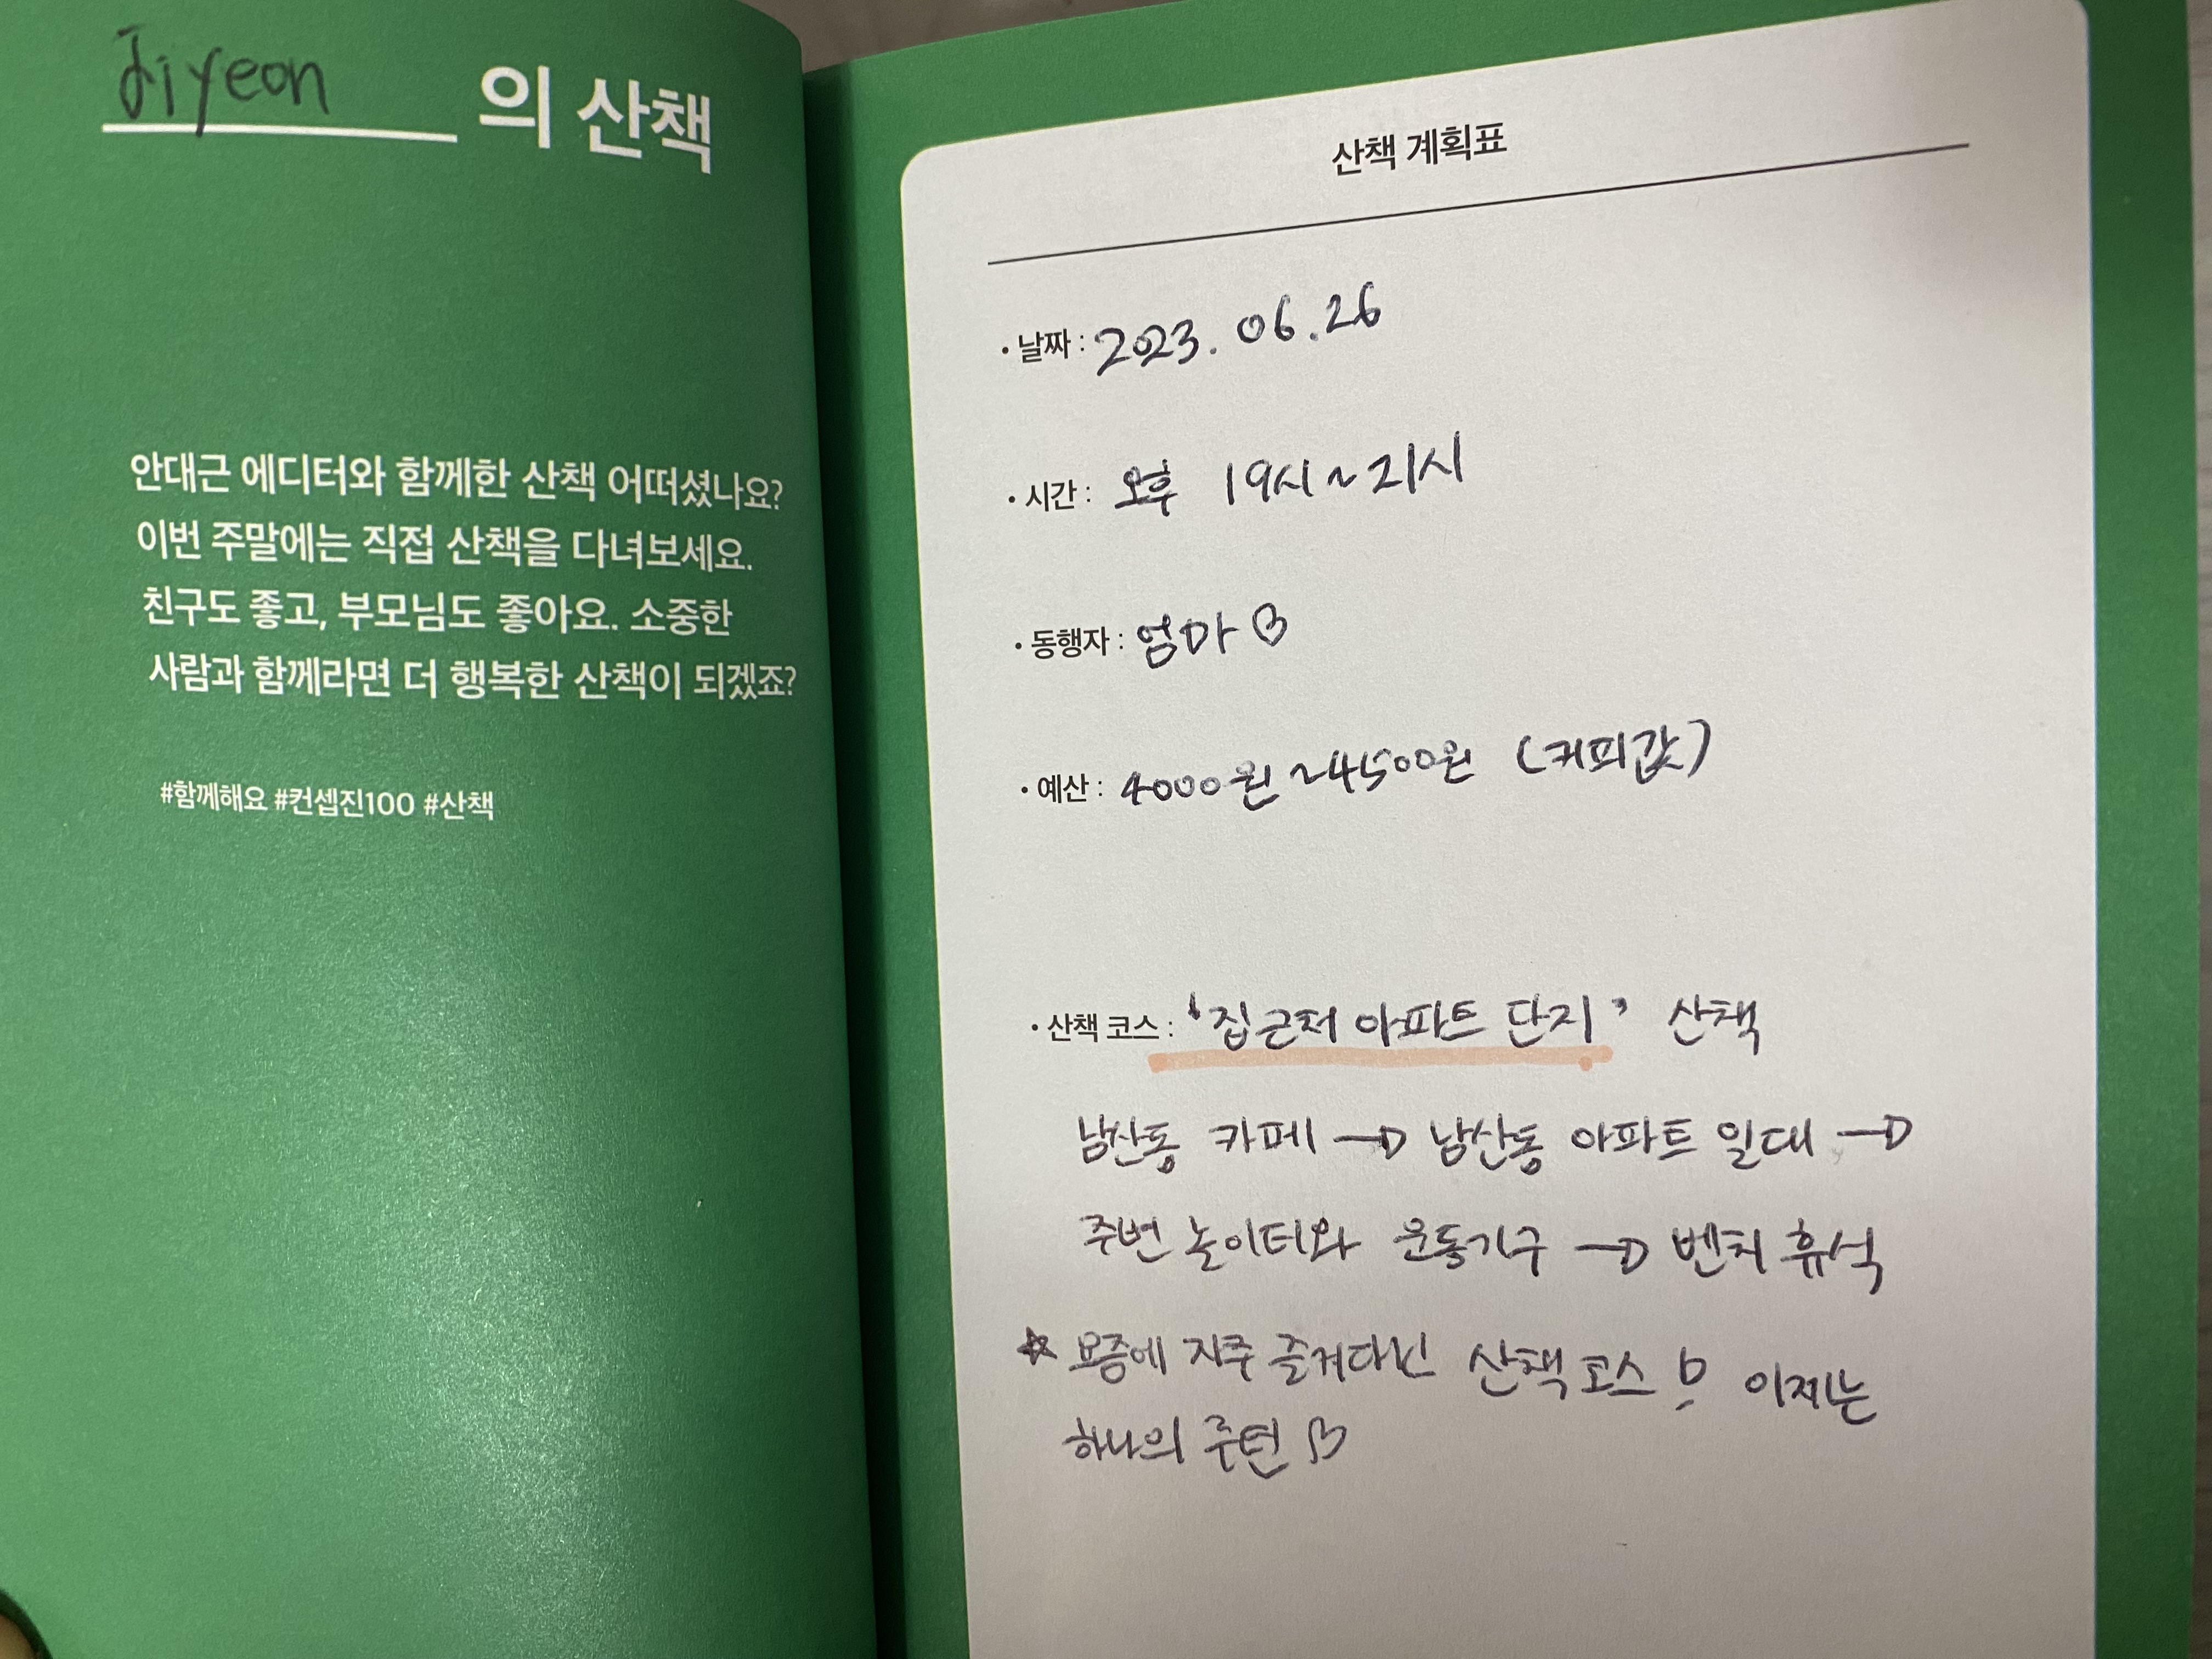 Jiyeon 의 산책
안대근 에디터와 함께한 산책 어떠셨나요?
이번 주말에는 직접 산책을 다녀보세요.
친구도 좋고, 부모님도 좋아요. 소중한
사람과 함께라면 더 행복한 산책이 되겠죠?
#함께해요 #컨셉진100 #산책
산책 계획표
• 날짜 : 2023. 06. 26
• 시간 : 오후 19시 ~ 21시
• 동행자 : 엄마 ♡
• 예산 : 4000원 ~4500원 (커피값)
• 산책 코스 : '집근처 아파트 단지' 산책
남산동 카페 → 남산동 아파트 일대 →
주변 놀이터와 운동기구 → 벤치 휴식
☆ 요즘에 자주 즐겨다닌 산책 코스! 이제는
하나의 루턴 ♡